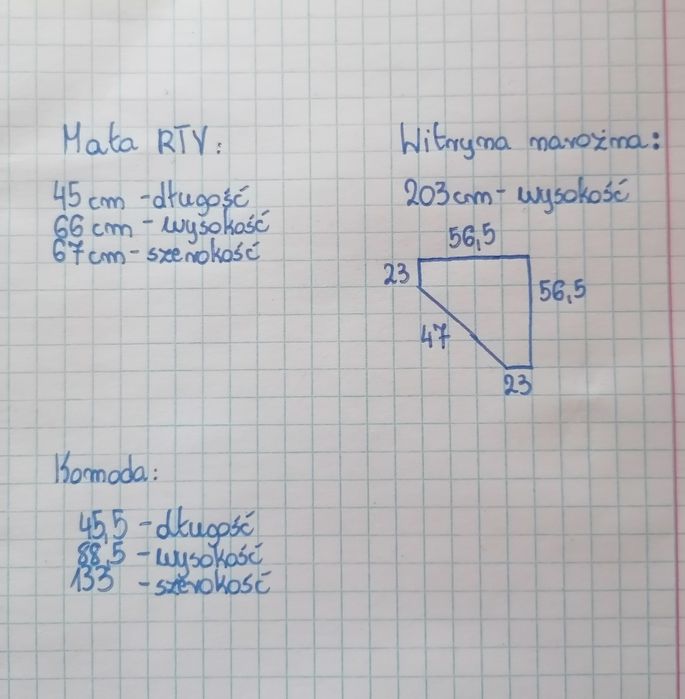 Mała RTV:
45 cm - długość
66 cm - wysokość
67 cm - szerokość
Witryna narożna:
203 cm - wysokość
56,5
23
56,5
47
23
Komoda:
45,5 - długość
88,5 - wysokość
133 - szerokość